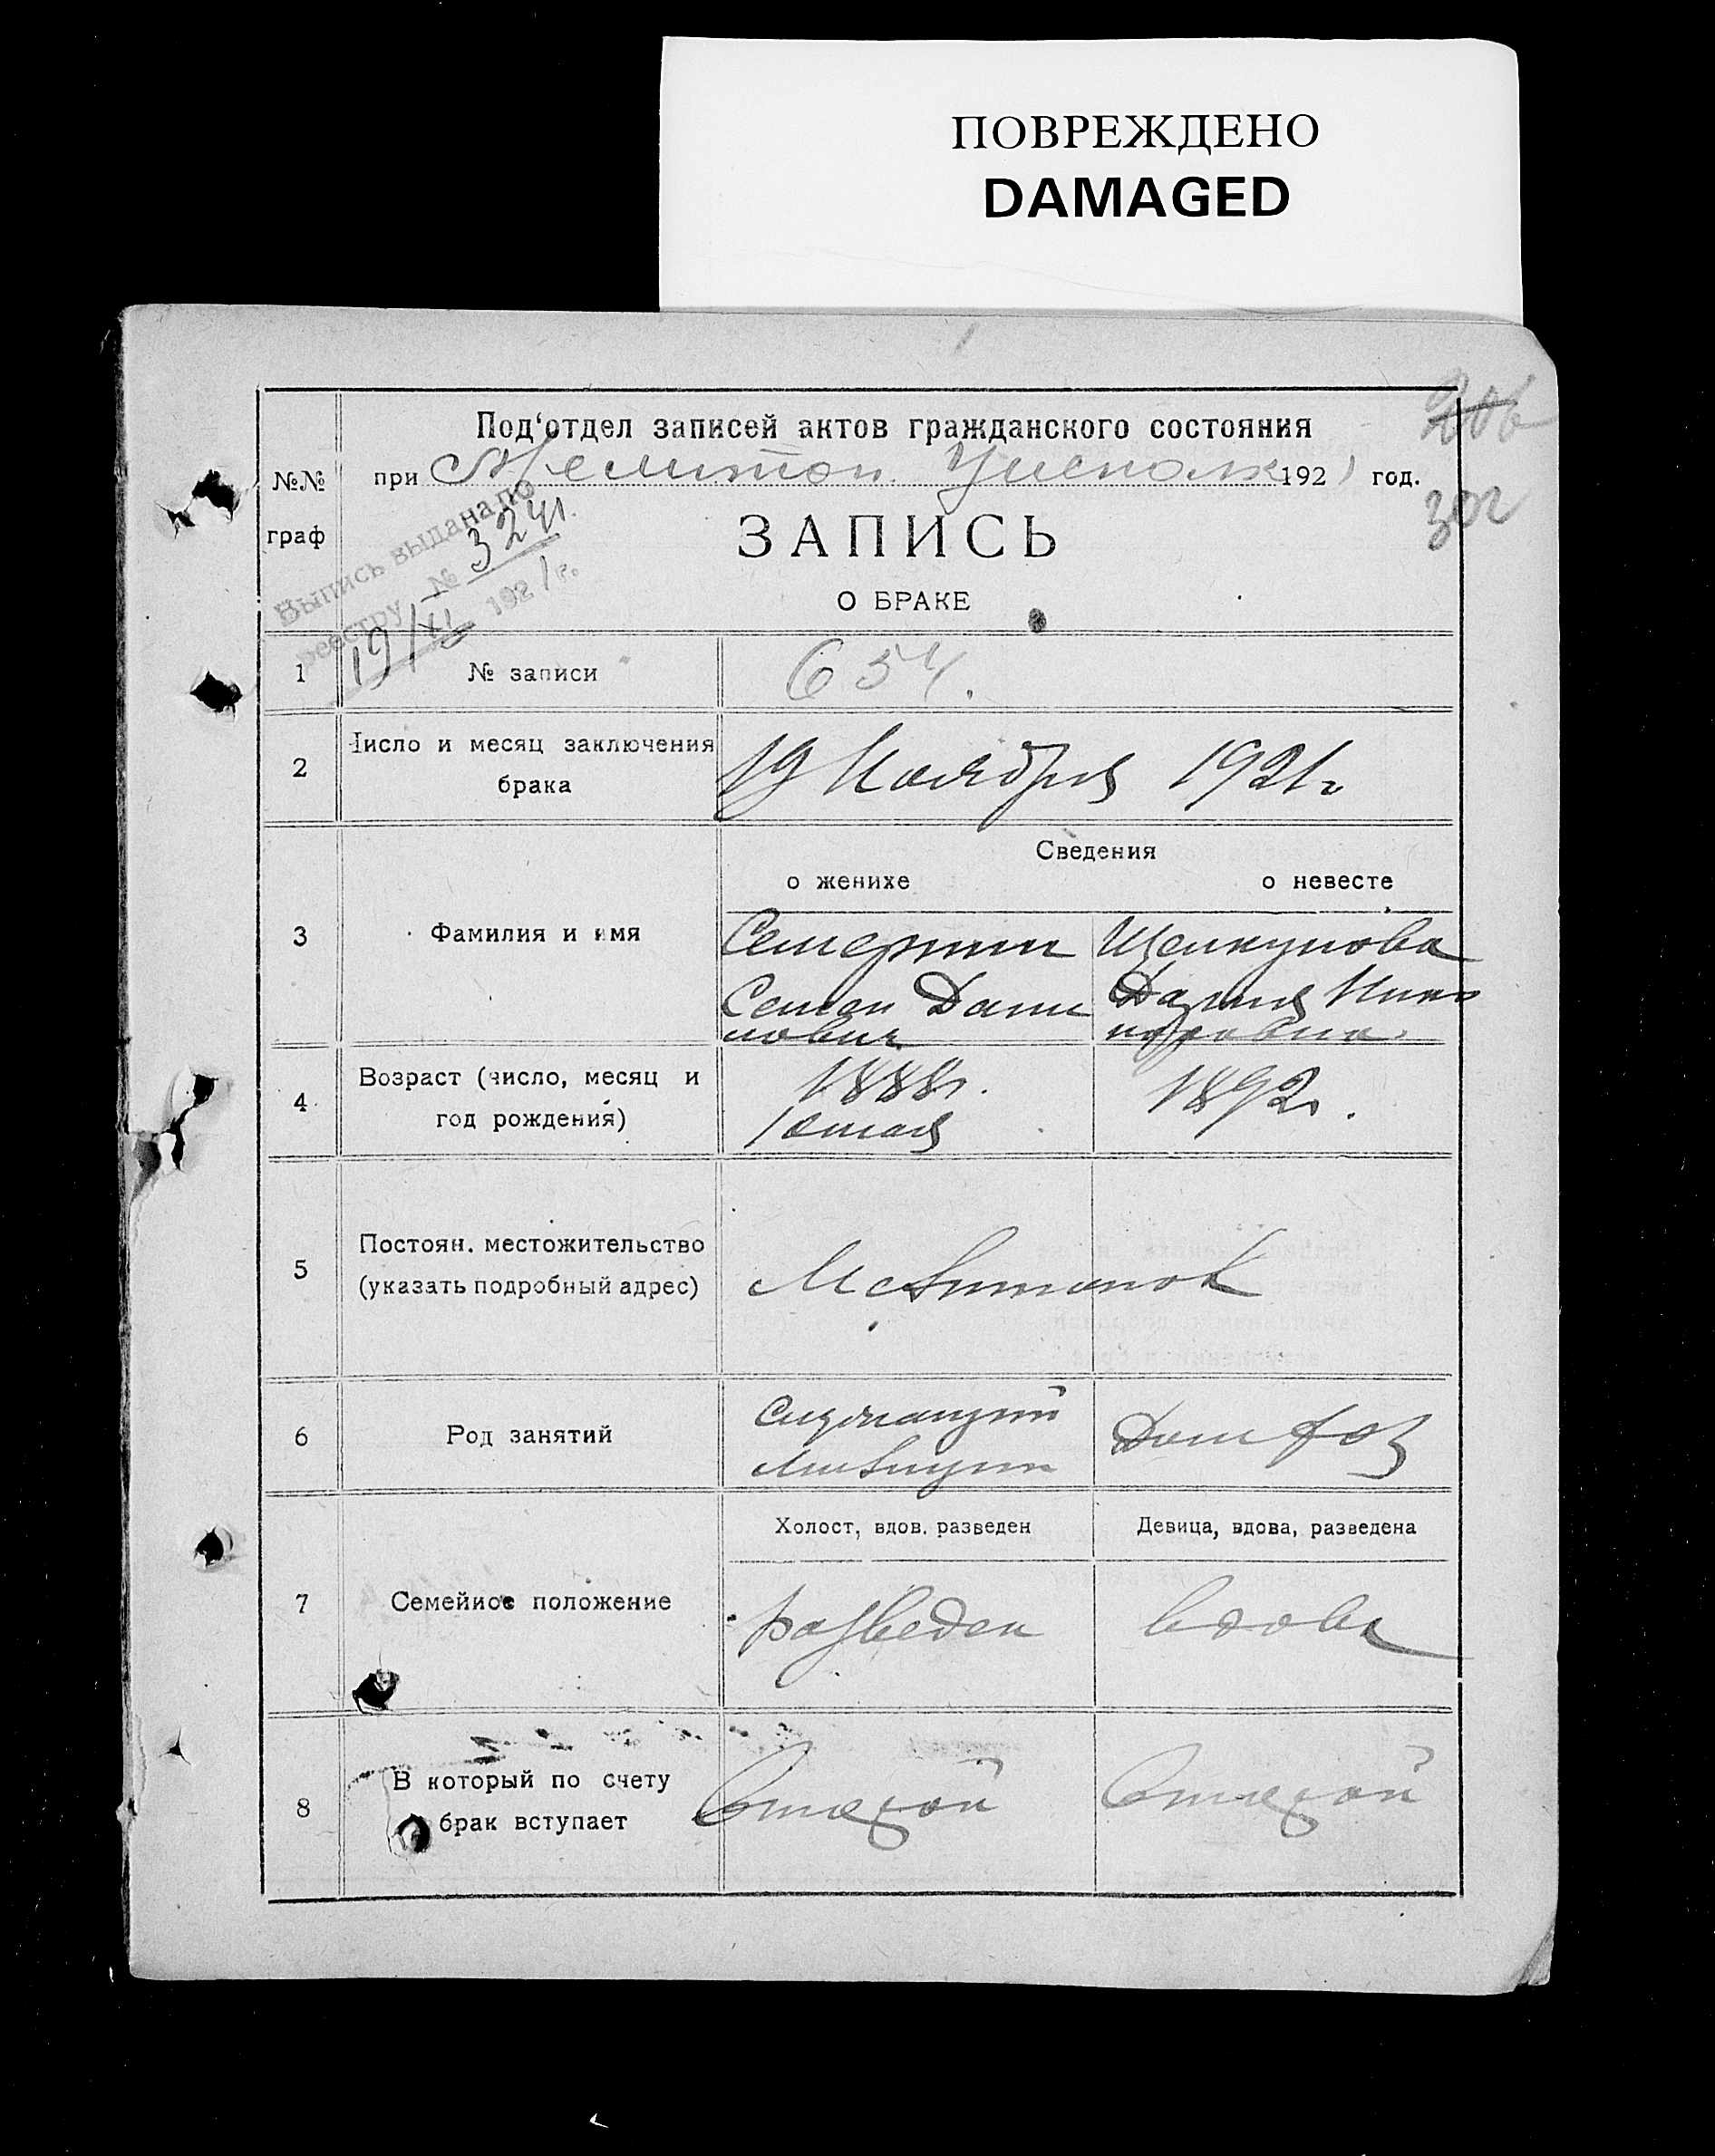 ПОВРЕЖДЕНО
DAMAGED
206
302
Под'отдел записей актов гражданского состояния
№№ граф
при Мелитоп. Уисполк 1921 год.
ЗАПИСЬ
О БРАКЕ
Выпись выдана по
реестру № 3241.
19/XI 1921 г.
1 № записи 654.
2 Число и месяц заключения
брака
19 Ноября 1921 г
Сведения
о женихе о невесте
3 Фамилия и имя
Семен Дани
лович
Щелкунова
Дария Ника
норовна.
4 Возраст (число, месяц и
год рождения)
1888 г.
1892 г.
5 Постоян. местожительство
(указать подробный адрес)
Мелитополь
6 Род занятий
Служащий
Милиции
Дом хоз
7 Семейное положение
Холост, вдов. разведен
Девица, вдова, разведена
разведен вдова
8 В который по счету
брак вступает
Второй Второй